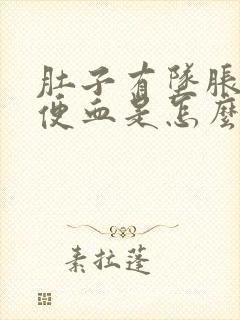 肚子有墜脹
便血是怎麼
素拉蓬